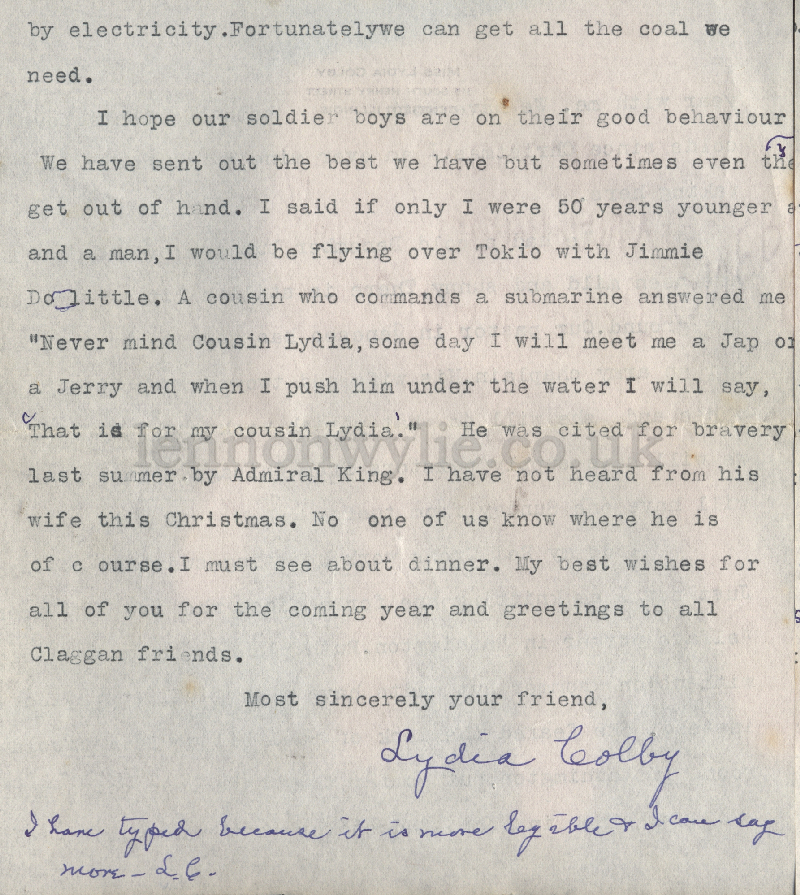 by electricity.Fortunatelywe can get all the coal we
need.
I hope our soldier boys are on their good behaviour
We have sent out the best we have but sometimes even they
get out of hand. I said if only I were 50 years younger a
and a man,I would be flying over Tokio with Jimmie
Doolittle. A cousin who commands a submarine answered me
"Never mind Cousin Lydia,some day I will meet me a Jap or
a Jerry and when I push him under the water I will say,
'That is for my cousin Lydia'." He was cited for bravery
last summer by Admiral King. I have not heard from his
wife this Christmas. No one of us know where he is
of c ourse.I must see about dinner. My best wishes for
all of you for the coming year and greetings to all
Claggan friends.
Most sincerely your friend,
Lydia Colby
I have typed because it is more legible & I can say
more - L.C.
lennonwylie.co.uk